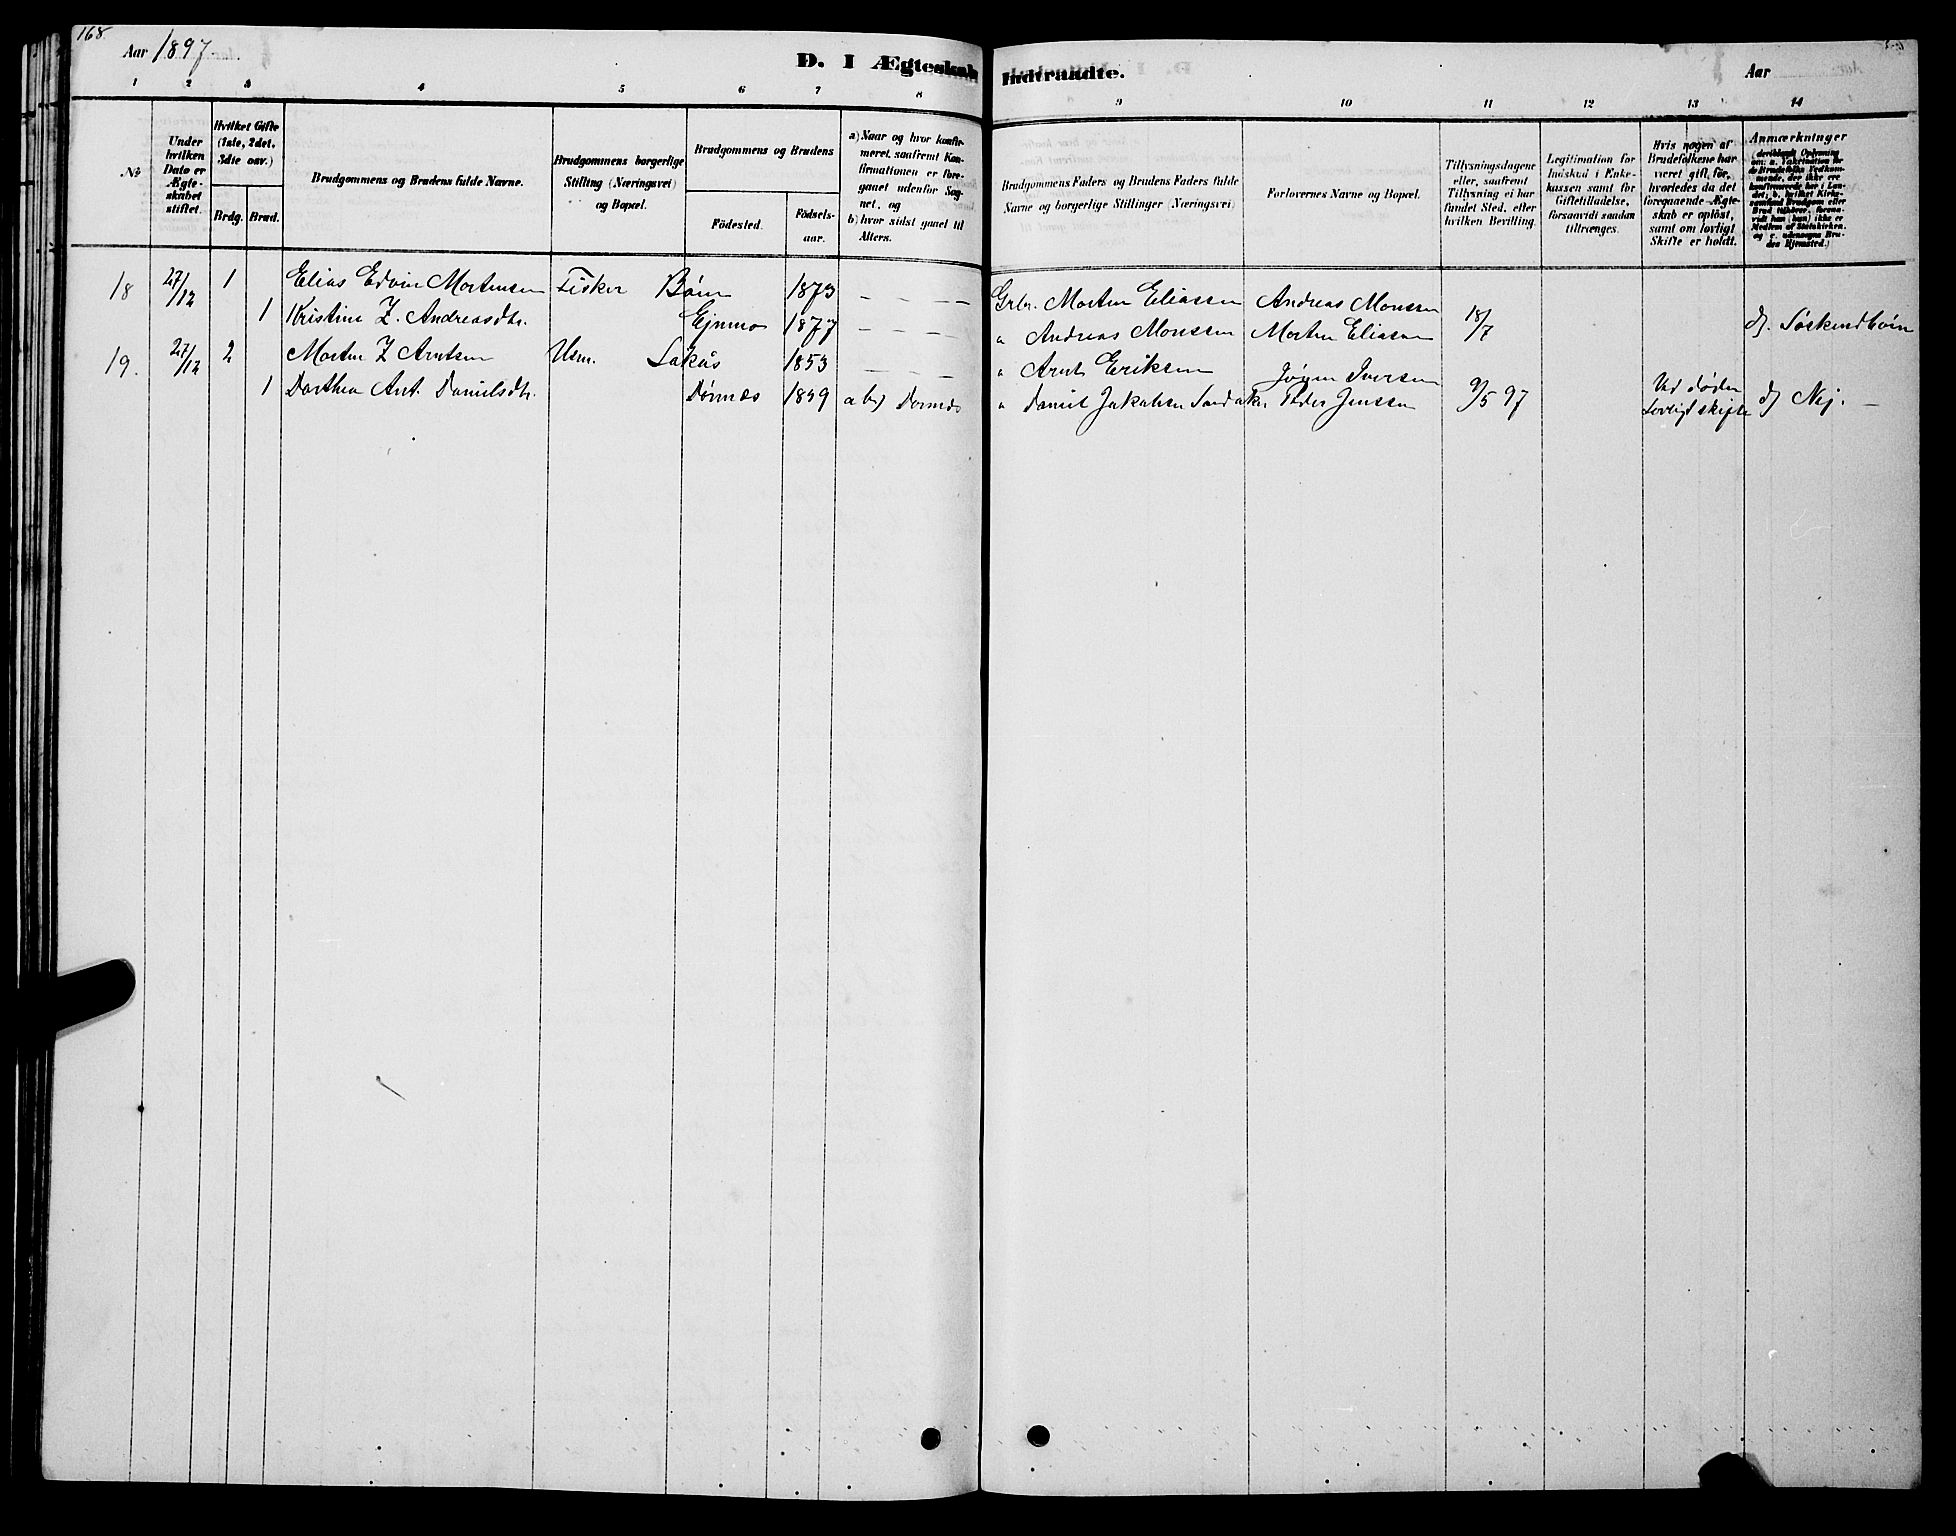 168
Aar 1897.
D. I Ægteskab Indtraadte.
Aar
1 2 3 4 5 6 7 8 9 10 11 12 13 14
No
Under hvilken Dato er Ægteskabet stiftet.
Hvilket Gifte (1ste, 2det, 3die osv.)
Brdg. Brud.
Brudgommens og Brudens fulde Navne.
Brudgommens borgerlige Stilling (Næringsvei) og Bopæl.
Brudgommens og Brudens
Fødested. Fødsels-aar.
a) Naar og hvor konfirmeret, saafremt Konfirmationen er foregaaet udenfor Sognet, og
b) hvor sidst gaaet til Alters.
Brudgommens Faders og Brudens Faders fulde Navne og borgerlige Stillinger (Næringsvei)
Forlovernes Navne og Bopæl.
Tillysningsdagene eller, saafremt Tillysning ei har fundet Sted, efter hvilken Bevilling.
Legitimation for Indskud i Enkekassen samt for Giftetilladelse, forsaavidt saadan tiltrænges.
Hvis nogen af Brudefolkene har været gift før, hvorledes da det foregaaende Ægteskab er opløst, samt om lovligt Skifte er holdt.
Anmærkninger
18 27/12 1 Elias Edvin Mortensen Fisker 1873 — — — — Grbr. Morten Eliassen Andreas Monssen 18/7
1 Kristine Z. Andreasdtr. 1877 — — — — " Andreas Monssen Morten Eliassen d). Søskendbørn
19. 27/12 2 Morten Z Arntsen Husm. Lakås 1853 — — — — " Arnt Eriksen Jørgen Iversen
1 Dorthea Ant. Danielsdtr. Dørnæs 1849 a b) Dørnæs " Daniel Jakobsen Sandaker Peder Jenssen 9/5 97 Ved døden Lovligt skifte d) Nej. —